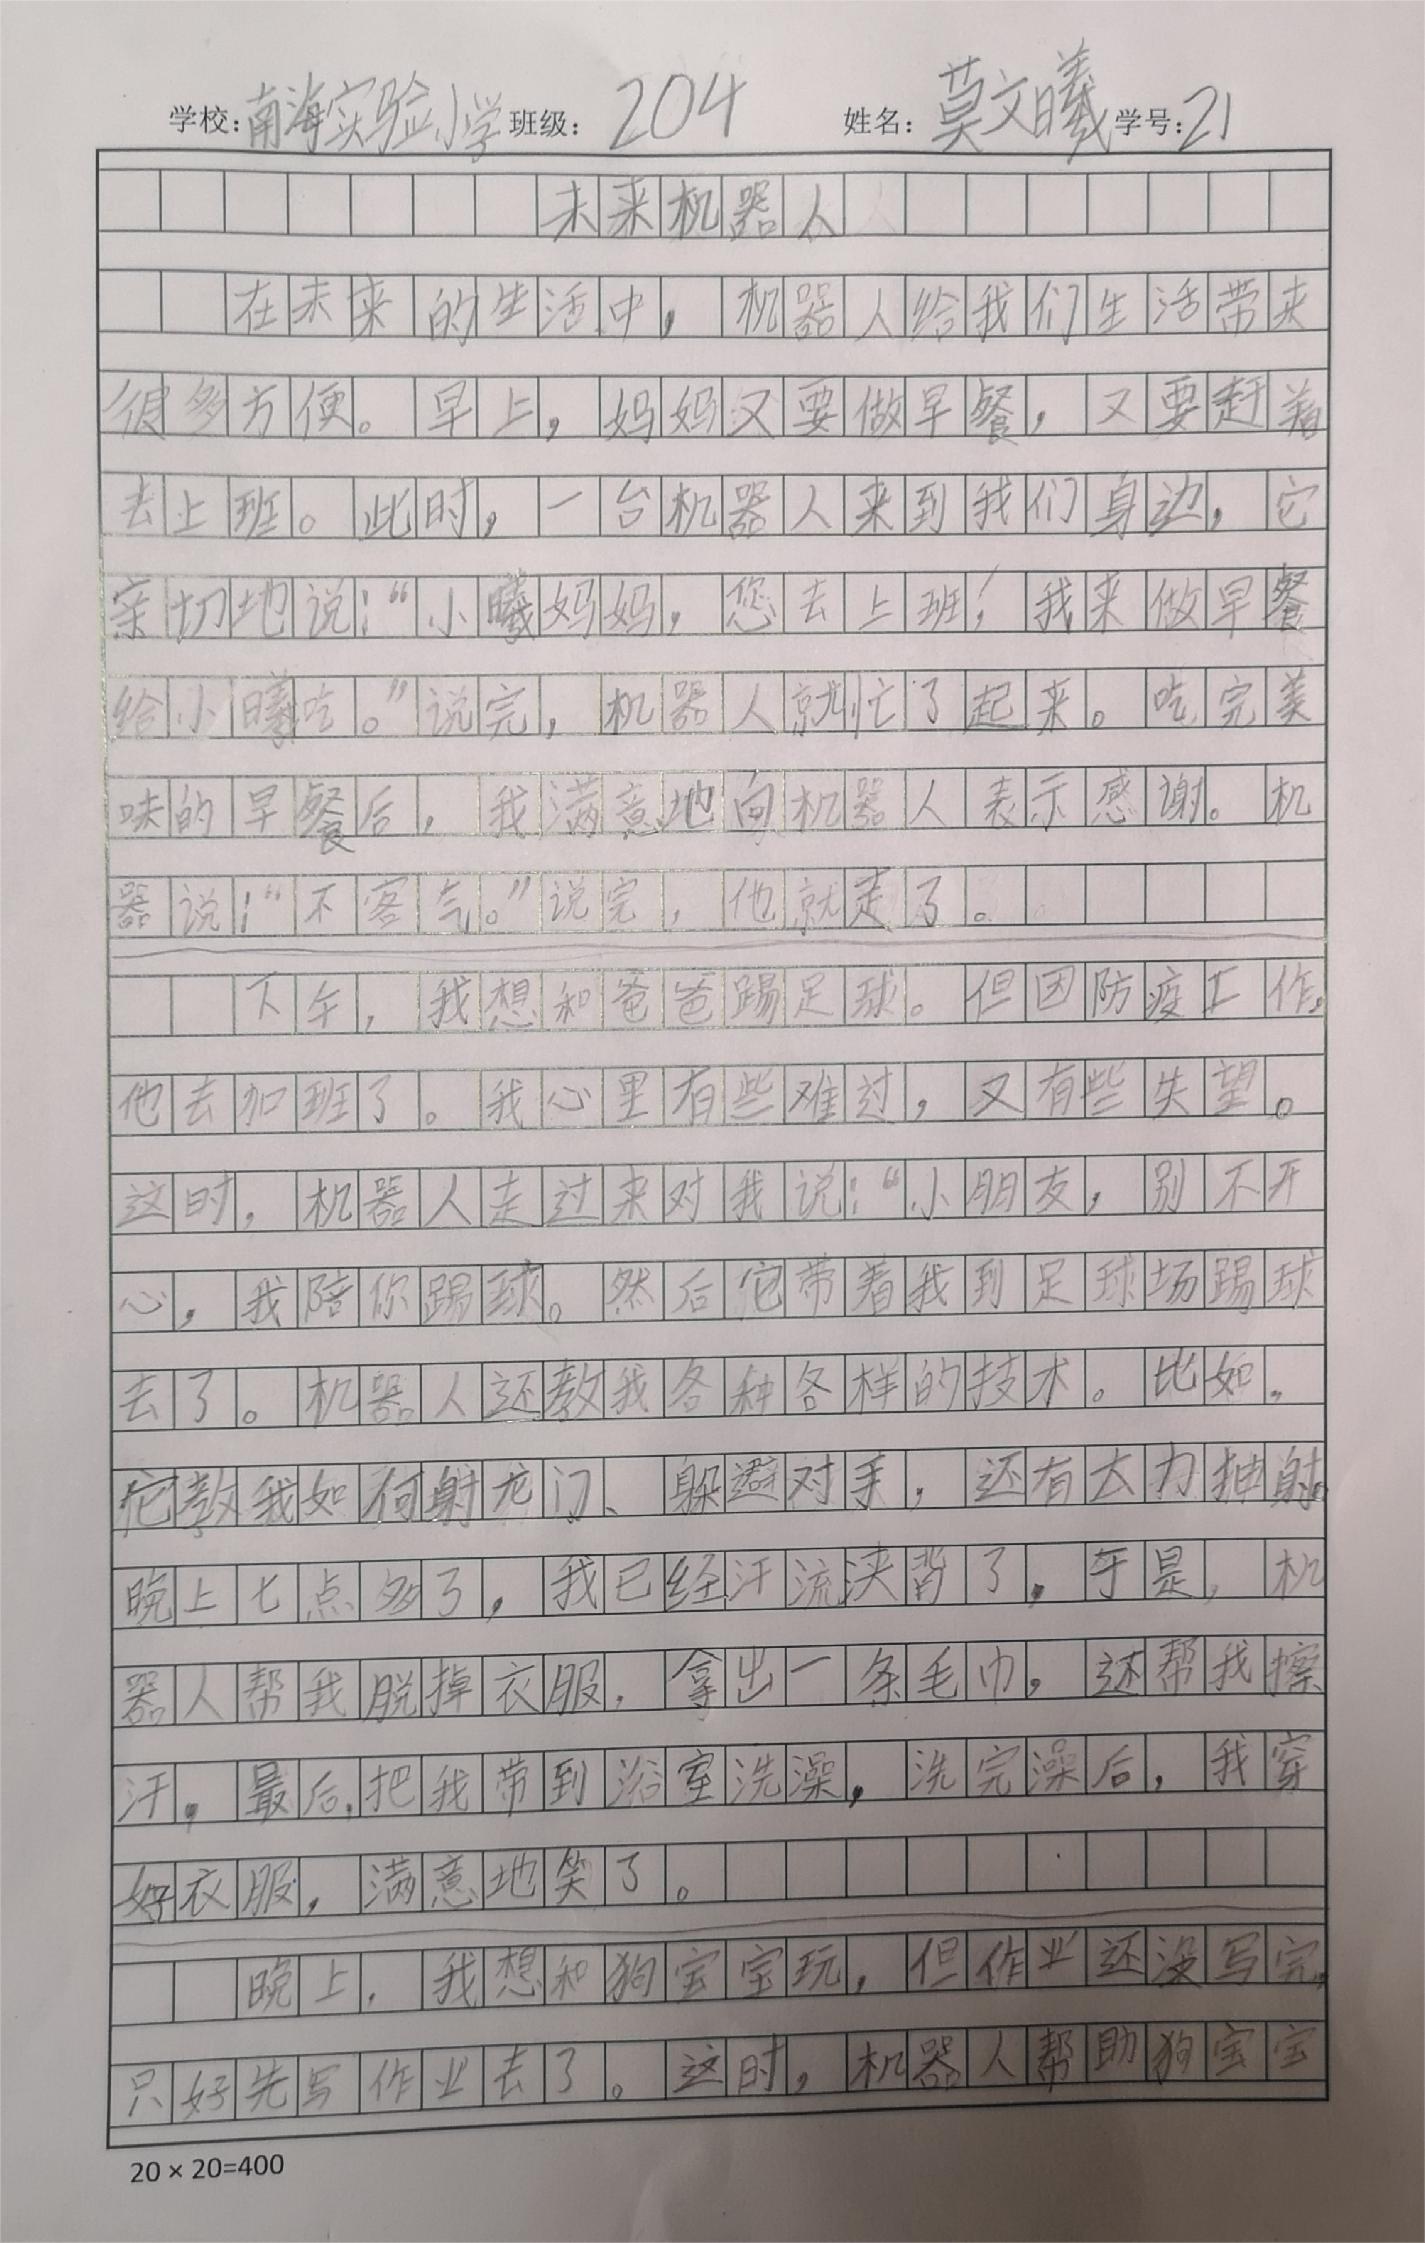 学校：南海实验小学 班级：204 姓名：莫文曦 学号：21
未来机器人
在未来的生活中，机器人给我们生活带来
很多方便。早上，妈妈又要做早餐，又要赶着
去上班。此时，一台机器人来到我们身边，它
亲切地说：“小曦妈妈，您去上班！我来做早餐
给小曦吃。”说完，机器人就忙了起来。吃完美
味的早餐后，我满意地向机器人表示感谢。机
器说：“不客气。”说完，他就走了。
下午，我想和爸爸踢足球。但因防疫工作，
他去加班了。我心里有些难过，又有些失望。
这时，机器人走过来对我说：“小朋友，别不开
心，我陪你踢球。然后它带着我到足球场踢球
去了。机器人还教我各种各样的技术。比如，
它教我如何射龙门、躲避对手，还有大力抽射。
晚上七点多了，我已经汗流浃背了，于是，机
器人帮我脱掉衣服，拿出一条毛巾，还帮我擦
汗，最后，把我带到浴室洗澡，洗完澡后，我穿
好衣服，满意地笑了。
晚上，我想和狗宝宝玩，但作业还没写完，
只好先写作业去了。这时，机器人帮助狗宝宝
20×20=400